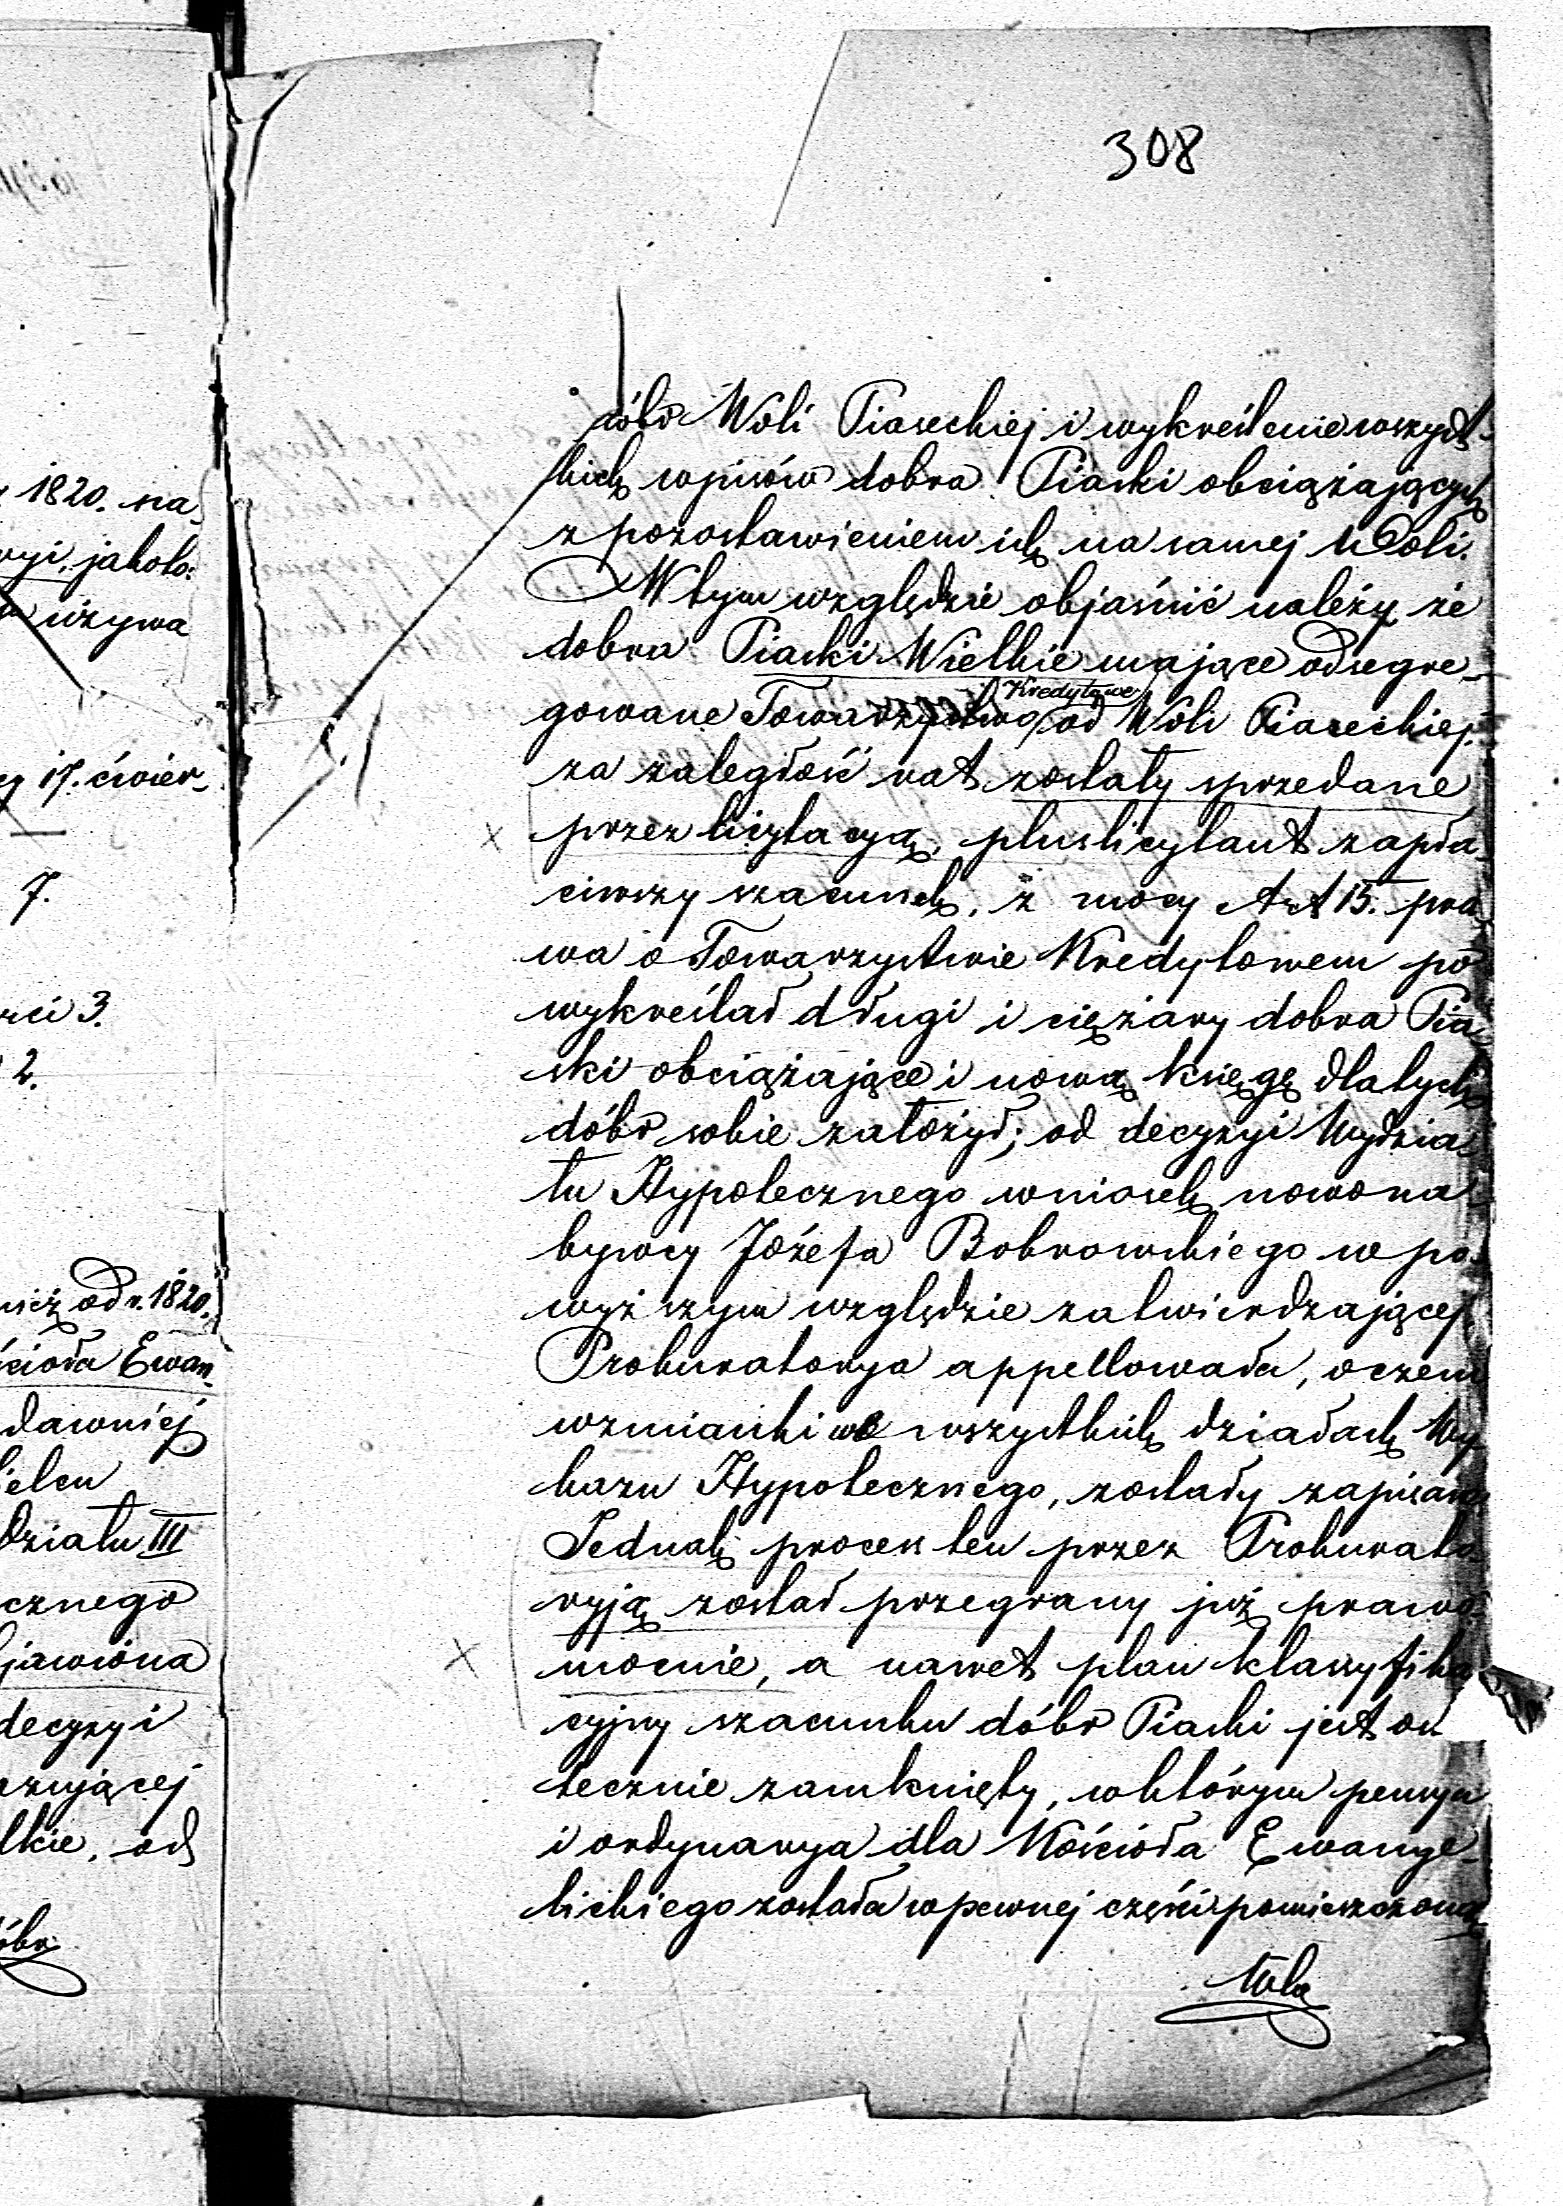 308
1820. na
jakoto:
używa
17. ćwier-
7.
3.
2.
od r. 1820.
Ewan
dawniej
Działu III
cznego
jawiona
decyzyi
lkie, od
óbr
dóbr Woli Piaseckiej i wykreślenie wszyst-
kich wpisów dobra Piaski obciążających
z pozostawieniem ich na samej Woli.
W tym względzie objaśnić należy że
dobra Piaski Wielkie mające odsegre-
gowane Towarzystwo Kredytowe od Woli Piaseckiej
za zaległość rat zostały sprzedane
przez licytacyą, pluslicytant zapła-
ciwszy szacunek, z mocy Art 15. pra-
wa o Towarzystwie Kredytowem po-
wykreślał długi i ciężary dobra Pia-
ski obciążające i nową księgę dla tych
dóbr sobie założył; od decyzyi Wydzia-
łu Hypotecznego wniosek nowona-
bywcy Józefa Bobrowskiego w po-
wyższym względzie zatwierdzającej
Prokuratorya appellowała, o czem
wzmianki we wszystkich działach Wy-
kazu Hypotecznego, zostały zapisane
Jednak proces ten przez Prokurato-
ryją został przegrany już prawo-
mocnie, a nawet plan klassyfika-
cyjny szacunku dóbr Piaski jest os
tecznie zamknięty, w którym pensya
i ordynarya dla Kościoła Ewange-
lickiego została w pewnej części pomieszczoną